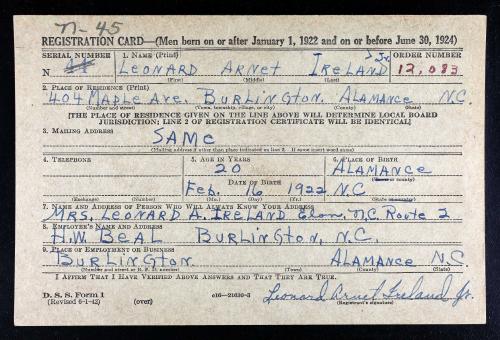 N-45
REGISTRATION CARD—(Men born on or after January 1, 1922 and on or before June 30, 1924)
SERIAL NUMBER 1. NAME (Print) ORDER NUMBER
N 44 LEONARD ARNET IRELAND Jr. 12,083
(First) (Middle) (Last)
2. PLACE OF RESIDENCE (Print)
404 MAPLE AVE. BURLINGTON. ALAMANCE N.C.
(Number and street) (Town, township, village, or city) (County) (State)
[THE PLACE OF RESIDENCE GIVEN ON THE LINE ABOVE WILL DETERMINE LOCAL BOARD
JURISDICTION; LINE 2 OF REGISTRATION CERTIFICATE WILL BE IDENTICAL]
3. MAILING ADDRESS
SAME
(Mailing address if other than place indicated on line 2. If same insert word same)
4. TELEPHONE 5. AGE IN YEARS 6. PLACE OF BIRTH
20 ALAMANCE
DATE OF BIRTH (Town or county)
Feb. 16 1922 N.C.
(Exchange) (Number) (Mo.) (Day) (Yr.) (State or country)
7. NAME AND ADDRESS OF PERSON WHO WILL ALWAYS KNOW YOUR ADDRESS
MRS. LEONARD A. IRELAND Elon, N.C. Route 2
8. EMPLOYER'S NAME AND ADDRESS
H.W. BEAL BURLINGTON, N.C.
9. PLACE OF EMPLOYMENT OR BUSINESS
BURLINGTON. ALAMANCE N.C.
(Number and street or R. F. D. number) (Town) (County) (State)
I AFFIRM THAT I HAVE VERIFIED ABOVE ANSWERS AND THAT THEY ARE TRUE.
D. S. S. Form 1
(Revised 6-1-42) (over) c16—21630-3 Leonard Arnet Ireland Jr.
(Registrant's signature)